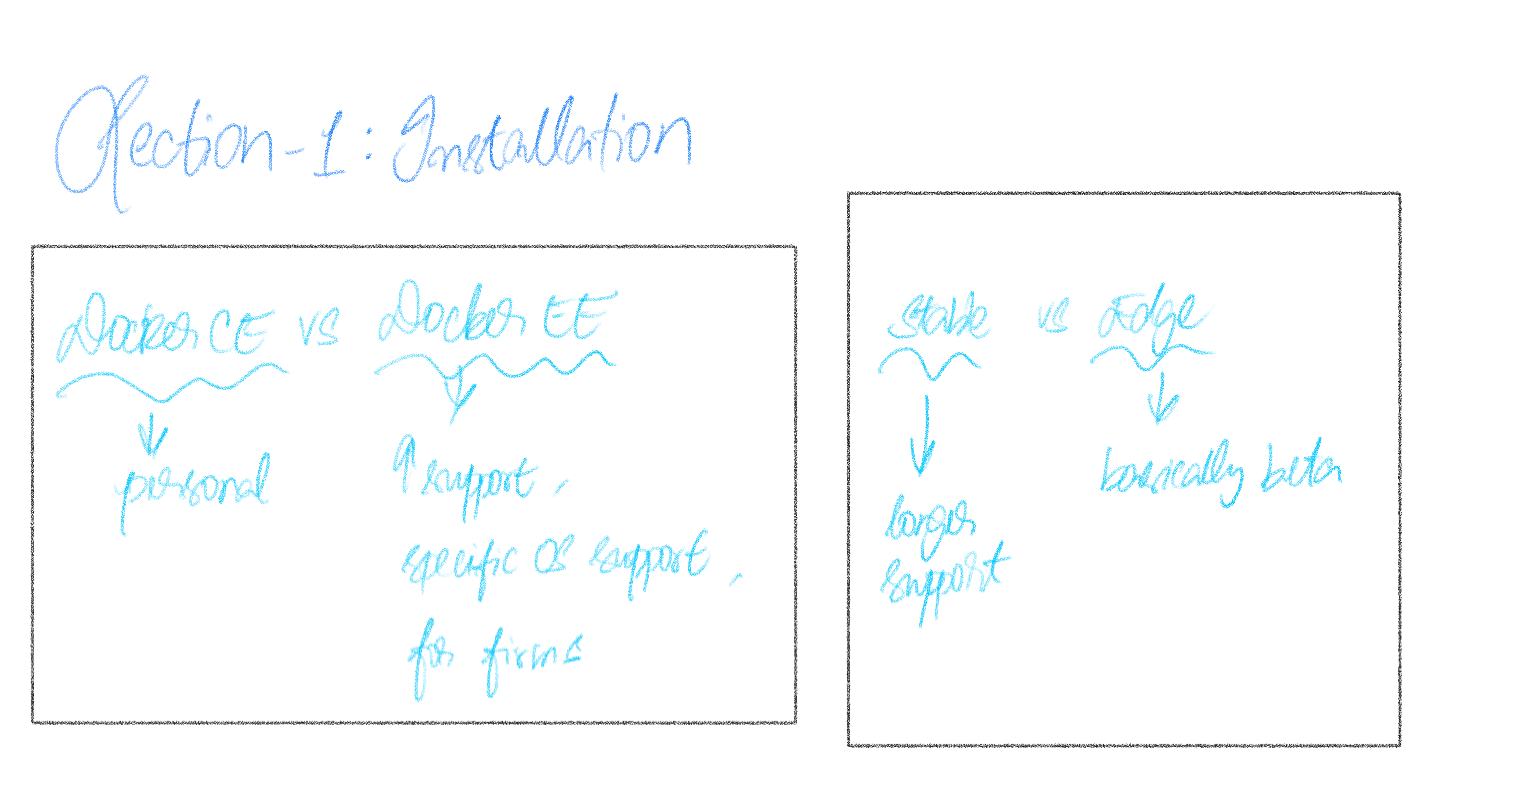 Section-1: Installation
Docker CE vs Docker EE
personal
↑ support,
specific OS support,
for firms
Stable vs Edge
larger
support
basically beta